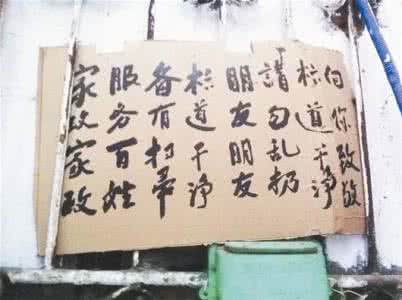 家政家政
服务百姓
备有扫帚
楼道干净
朋友朋友
請勿乱扔
楼道干净
向你致敬